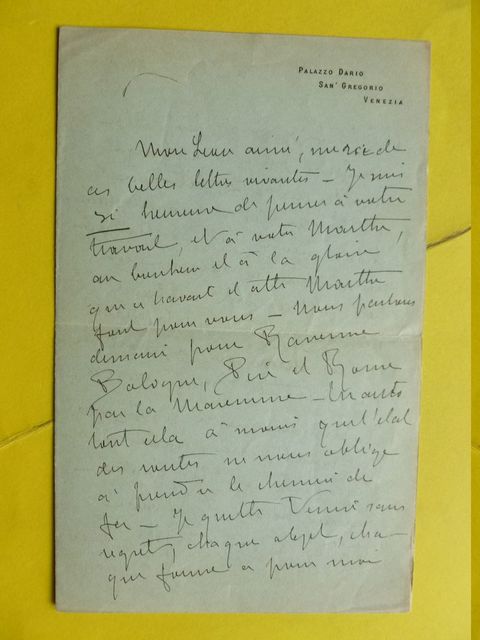 PALAZZO DARIO
SAN' GREGORIO
VENEZIA
Mon Leon aimé, merci de
ces belles lettres vivantes – Je suis
si heureuse de penser à votre
travail, et à votre Marthe,
au bonheur et à la gloire,
que ce travail et cette Marthe
font pour vous – Nous partons
demain pour Ravenne
Bologne, Pise et Rome
par la Maremme – en auto
tout cela à moins que l'état
des routes ne nous oblige
à prendre le chemin de
fer – Je quitte Venise sans
regret, chaque objet, cha-
que forme a pour moi